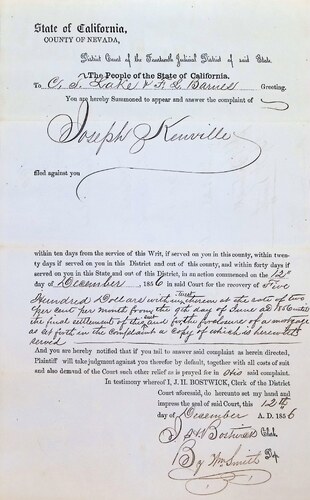 State of California,
COUNTY OF NEVADA,
District Court of the Fourteenth Judicial District of said State.
The People of the State of California.
To C. S. Lake & F. L. Barnes Greeting.
You are hereby Summoned to appear and answer the complaint of
Joseph Kenville
filed against you
within ten days from the service of this Writ, if served on you in this county, within twen-
ty days if served on you in this District and out of this county, and within forty days if
served on you in this State and out of this District, in an action commenced on the 12th
day of December, 1856 in said Court for the recovery of Five
Hundred Dollars with Interest thereon at the rate of two
per cent per month from the 9th day of June AD 1856 until
the final settlement of this and for the foreclosure of a mortgage
as set forth in the Complaint a copy of which is herewith
served
And you are hereby notified that if you fail to answer said complaint as herein directed,
Plaintiff will take judgment against you therefor by default, together with all costs of suit
and also demand of the Court such other relief as is prayed for in his said complaint.
In testimony whereof I, J. H. BOSTWICK, Clerk of the District
Court aforesaid, do hereunto set my hand and
impress the seal of said Court, this 12th
day of December A. D. 1856
J. H. Bostwick Clerk.
By Wm Smith Dep